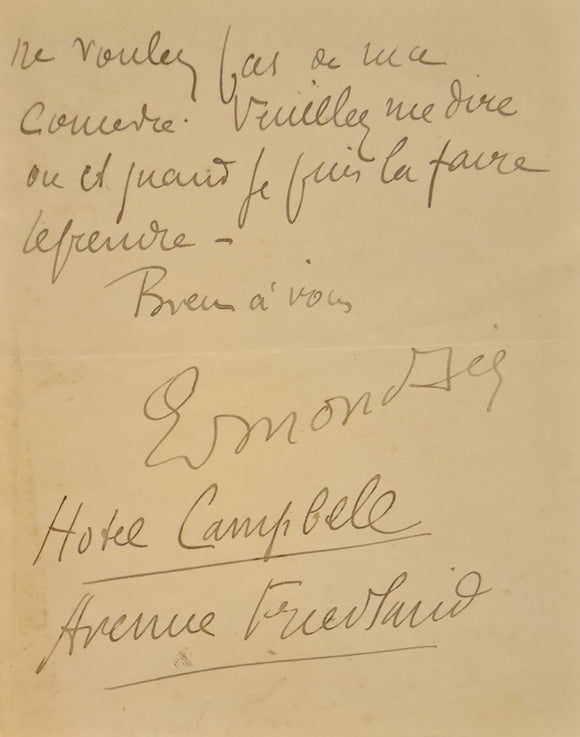 ne voulez pas de ma
Comedie. Veuillez me dire
ou et quand je puis la faire
reprendre -
Bien à vous
Edmond Sée
Hotel Campbell
Avenue Friedland